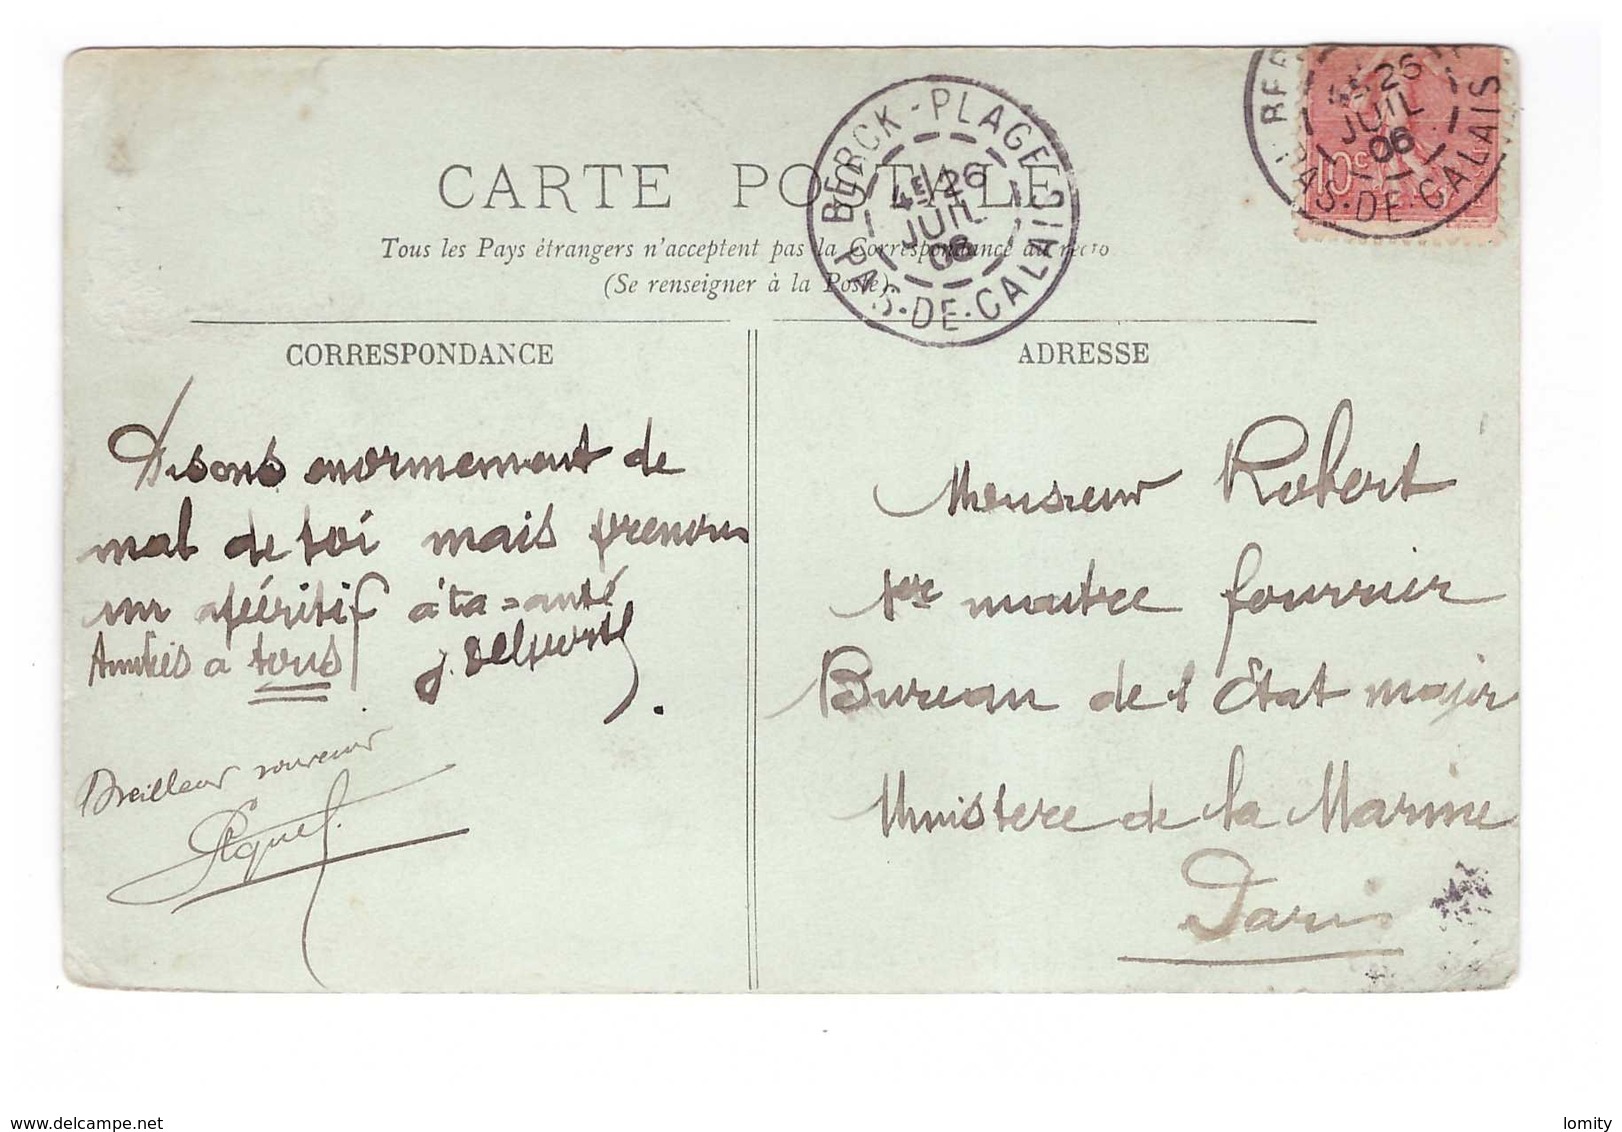 CARTE POSTALE
Tous les Pays étrangers n'acceptent pas la Correspondance au recto
(Se renseigner à la Poste).
BERCK-PLAGE
4E 26
JUIL
06
PAS-DE-CALAIS
4E 26
JUIL
06
PAS-DE-CALAIS
10c
CORRESPONDANCE
Disons enormement de
mal de toi mais prenons
un apéritif à ta santé
Amitiés a tous J. Delporte
Meilleur souvenir
ADRESSE
Monsieur Robert
1er maitre fourrier
Bureau de l'État major
Ministere de la Marine
Paris
delcampe.net
lomity